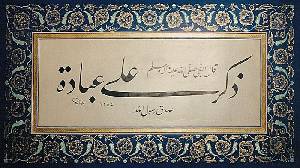 قال النبي صلى الله عليه وسلم
ذكر علي عبادة
صدق رسول الله